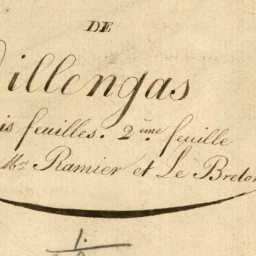 DE
illengas
is feuilles. 2.ème feuille
Mrs Ramier et Le Breton
1.